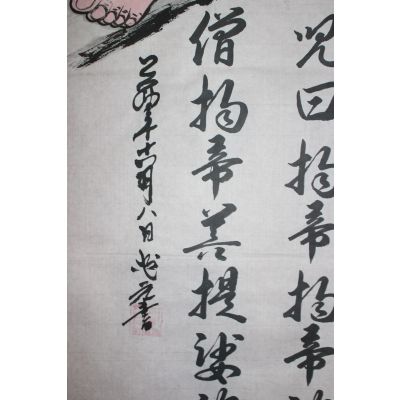 咒曰揭帝揭帝
僧揭帝菩提娑
年十六月八日 書